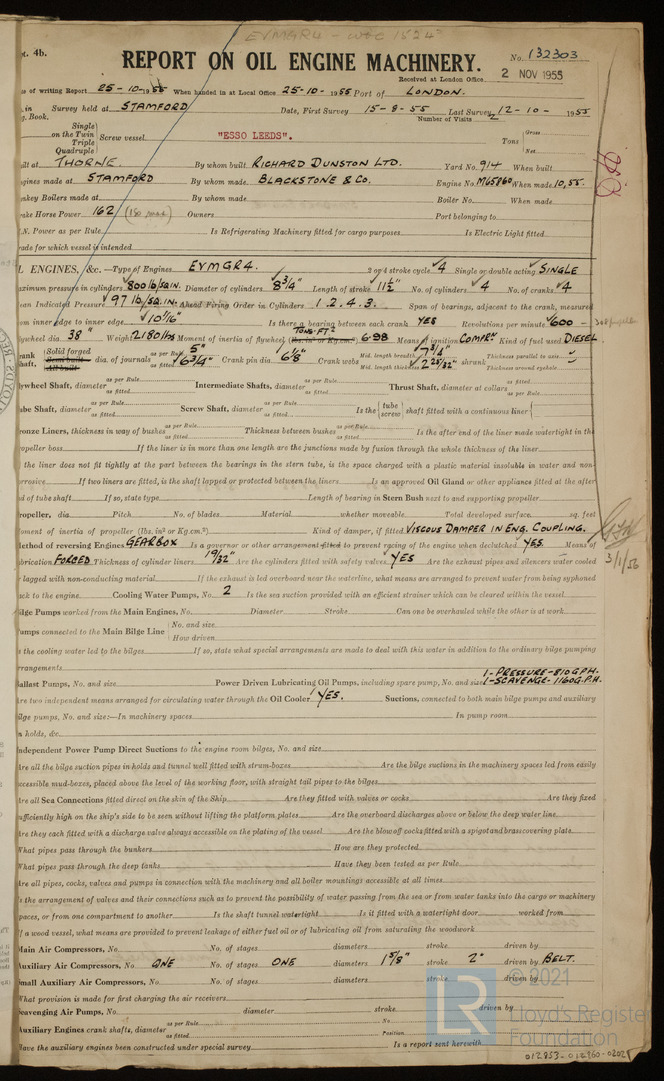 EVMGR4 - WEE 1524
pt. 4b.
REPORT ON OIL ENGINE MACHINERY.
No. 132303
Received at London Office 2 NOV 1955
of writing Report 25-10-1955 When handed in at Local Office 25-10-1955 Port of LONDON.
in Survey held at STAMFORD Date, First Survey 15-8-55 Last Survey 12-10-1955
g. Book. Number of Visits 2
Single
on the Twin
Triple
Quadruple
Screw vessel "ESSO LEEDS". Tons Gross Net
ilt at THORNE By whom built RICHARD DUNSTON LTD. Yard No. 914 When built
gines made at STAMFORD By whom made BLACKSTONE & Co. Engine No. M65860 When made 10,55.
nkey Boilers made at By whom made Boiler No. When made
ake Horse Power 162 Owners Port belonging to
.N. Power as per Rule Is Refrigerating Machinery fitted for cargo purposes Is Electric Light fitted
ade for which vessel is intended
L ENGINES, &c.—Type of Engines EVMGR4. 2 or 4 stroke cycle 4 Single or double acting SINGLE
aximum pressure in cylinders 800 lb/SQ.IN. Diameter of cylinders 8 3/4" Length of stroke 11 1/2" No. of cylinders 4 No. of cranks 4
ean Indicated Pressure 97 lb/SQ.IN. Ahead Firing Order in Cylinders 1.2.4.3. Span of bearings, adjacent to the crank, measured
om inner edge to inner edge 10 1/16" Is there a bearing between each crank YES Revolutions per minute 600
lywheel dia. 38" Weight 2180 lbs Moment of inertia of flywheel (lbs. in² or Kg.cm.²) TONS-FT² 6.98 Means of ignition COMPN Kind of fuel used DIESEL
rank Shaft, Solid forged Semi built All built dia. of journals as per Rule 5" as fitted 6 3/4" Crank pin dia. 6 1/8" Crank webs Mid. length breadth 7 3/4" Mid. length thickness 2 25/32" shrunk Thickness parallel to axis Thickness around eyehole
lywheel Shaft, diameter as per Rule as fitted Intermediate Shafts, diameter as per Rule as fitted Thrust Shaft, diameter at collars as fitted as per Rule
ube Shaft, diameter as per Rule as fitted Screw Shaft, diameter as per Rule as fitted Is the tube screw shaft fitted with a continuous liner
onze Liners, thickness in way of bushes as per Rule as fitted Thickness between bushes as per Rule as fitted Is the after end of the liner made watertight in the
opeller boss If the liner is in more than one length are the junctions made by fusion through the whole thickness of the liner
the liner does not fit tightly at the part between the bearings in the stern tube, is the space charged with a plastic material insoluble in water and non-
rrosive If two liners are fitted, is the shaft lapped or protected between the liners Is an approved Oil Gland or other appliance fitted at the after
d of tube shaft If so, state type Length of bearing in Stern Bush next to and supporting propeller
ropeller, dia. Pitch No. of blades Material whether moveable Total developed surface sq. feet
oment of inertia of propeller (lbs. in² or Kg.cm.²) Kind of damper, if fitted VISCOUS DAMPER IN ENG. COUPLING.
ethod of reversing Engines GEARBOX Is a governor or other arrangement fitted to prevent racing of the engine when declutched YES. Means of
brication FORCED Thickness of cylinder liners 19/32" Are the cylinders fitted with safety valves YES Are the exhaust pipes and silencers water cooled
3/1/56
lagged with non-conducting material If the exhaust is led overboard near the waterline, what means are arranged to prevent water from being syphoned
ack to the engine Cooling Water Pumps, No. 2 Is the sea suction provided with an efficient strainer which can be cleared within the vessel
ilge Pumps worked from the Main Engines, No. Diameter Stroke Can one be overhauled while the other is at work
umps connected to the Main Bilge Line No. and size How driven
s the cooling water led to the bilges If so, state what special arrangements are made to deal with this water in addition to the ordinary bilge pumping
rrangements
allast Pumps, No. and size Power Driven Lubricating Oil Pumps, including spare pump, No. and size 1-PRESSURE-810 G.P.H. 1-SCAVENGE-1160 G.P.H.
re two independent means arranged for circulating water through the Oil Cooler YES. Suctions, connected to both main bilge pumps and auxiliary
ilge pumps, No. and size:—In machinery spaces In pump room
n holds, &c.
ndependent Power Pump Direct Suctions to the engine room bilges, No. and size
re all the bilge suction pipes in holds and tunnel well fitted with strum-boxes Are the bilge suctions in the machinery spaces led from easily
ccessible mud-boxes, placed above the level of the working floor, with straight tail pipes to the bilges
re all Sea Connections fitted direct on the skin of the Ship Are they fitted with valves or cocks Are they fixed
ufficiently high on the ship's side to be seen without lifting the platform plates Are the overboard discharges above or below the deep water line
re they each fitted with a discharge valve always accessible on the plating of the vessel Are the blow off cocks fitted with a spigot and brass covering plate
What pipes pass through the bunkers How are they protected
What pipes pass through the deep tanks Have they been tested as per Rule
Are all pipes, cocks, valves and pumps in connection with the machinery and all boiler mountings accessible at all times
s the arrangement of valves and their connections such as to prevent the possibility of water passing from the sea or from water tanks into the cargo or machinery
paces, or from one compartment to another Is the shaft tunnel watertight Is it fitted with a watertight door worked from
f a wood vessel, what means are provided to prevent leakage of either fuel oil or of lubricating oil from saturating the woodwork
Main Air Compressors, No. No. of stages diameters stroke driven by
Auxiliary Air Compressors, No. ONE No. of stages ONE diameters 1 5/8" stroke 2" driven by BELT.
Small Auxiliary Air Compressors, No. No. of stages diameters stroke driven by
What provision is made for first charging the air receivers
Scavenging Air Pumps, No. diameter stroke driven by
Auxiliary Engines crank shafts, diameter as per Rule as fitted No. Position
Have the auxiliary engines been constructed under special survey Is a report sent herewith
© 2021
Lloyd's Register
Foundation
012853-012860-0202